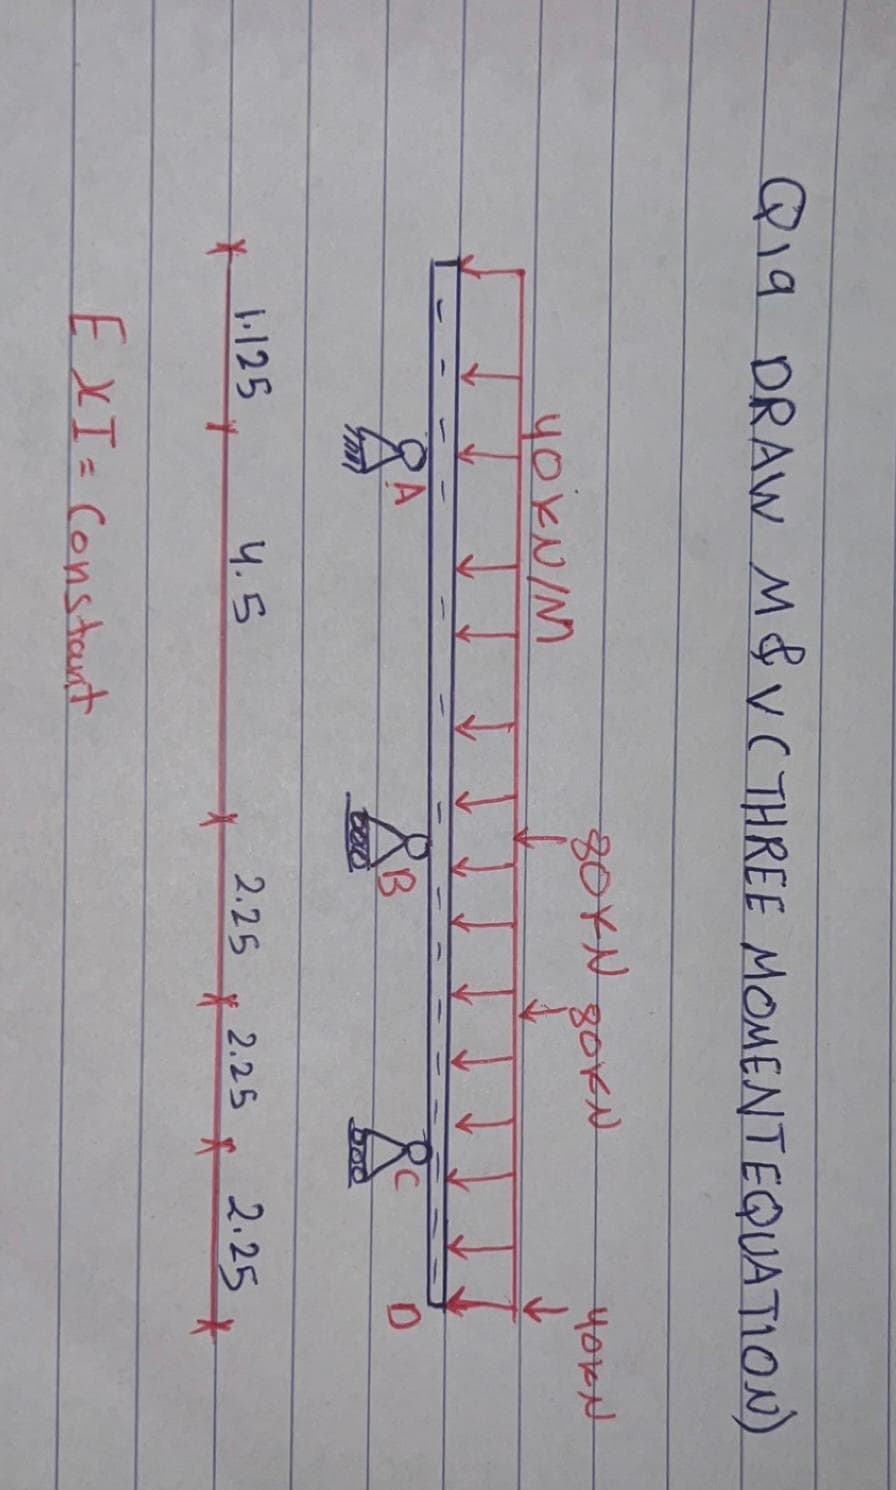 Q19 DRAW M & V (THREE MOMENT EQUATION)
80KN 80KN 40KN
40KN/M
A B C D
1.125 4.5 2.25 2.25 2.25
EXI = Constant